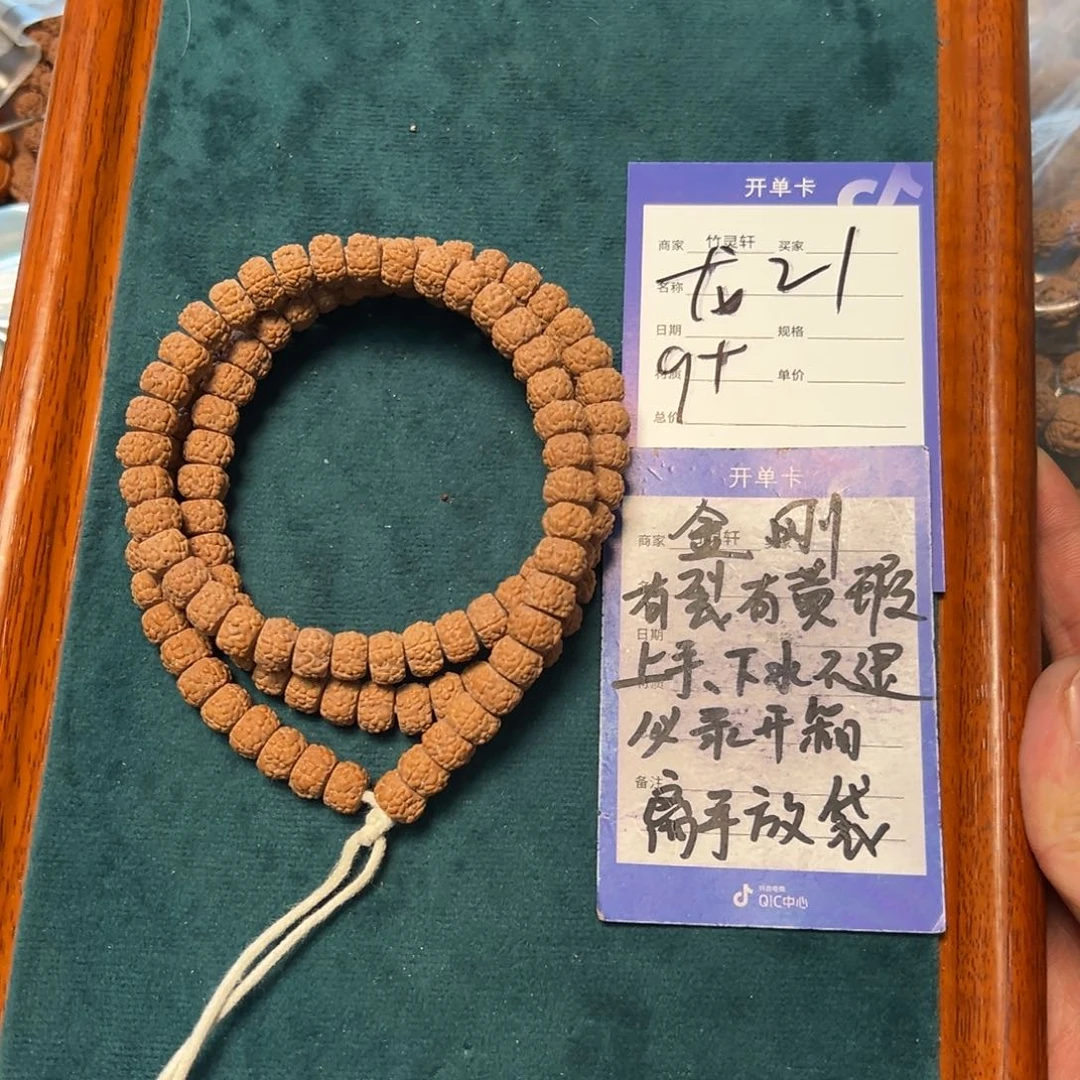 开单卡
商家 竹灵轩 买家
名称 龙21
日期 规格
9+
材质 单价
总价
开单卡
商家 金刚 轩
有裂有黄瑕
日期
上手、下水不退
必录开箱
备注
扁平放袋
抖音电商
QIC中心